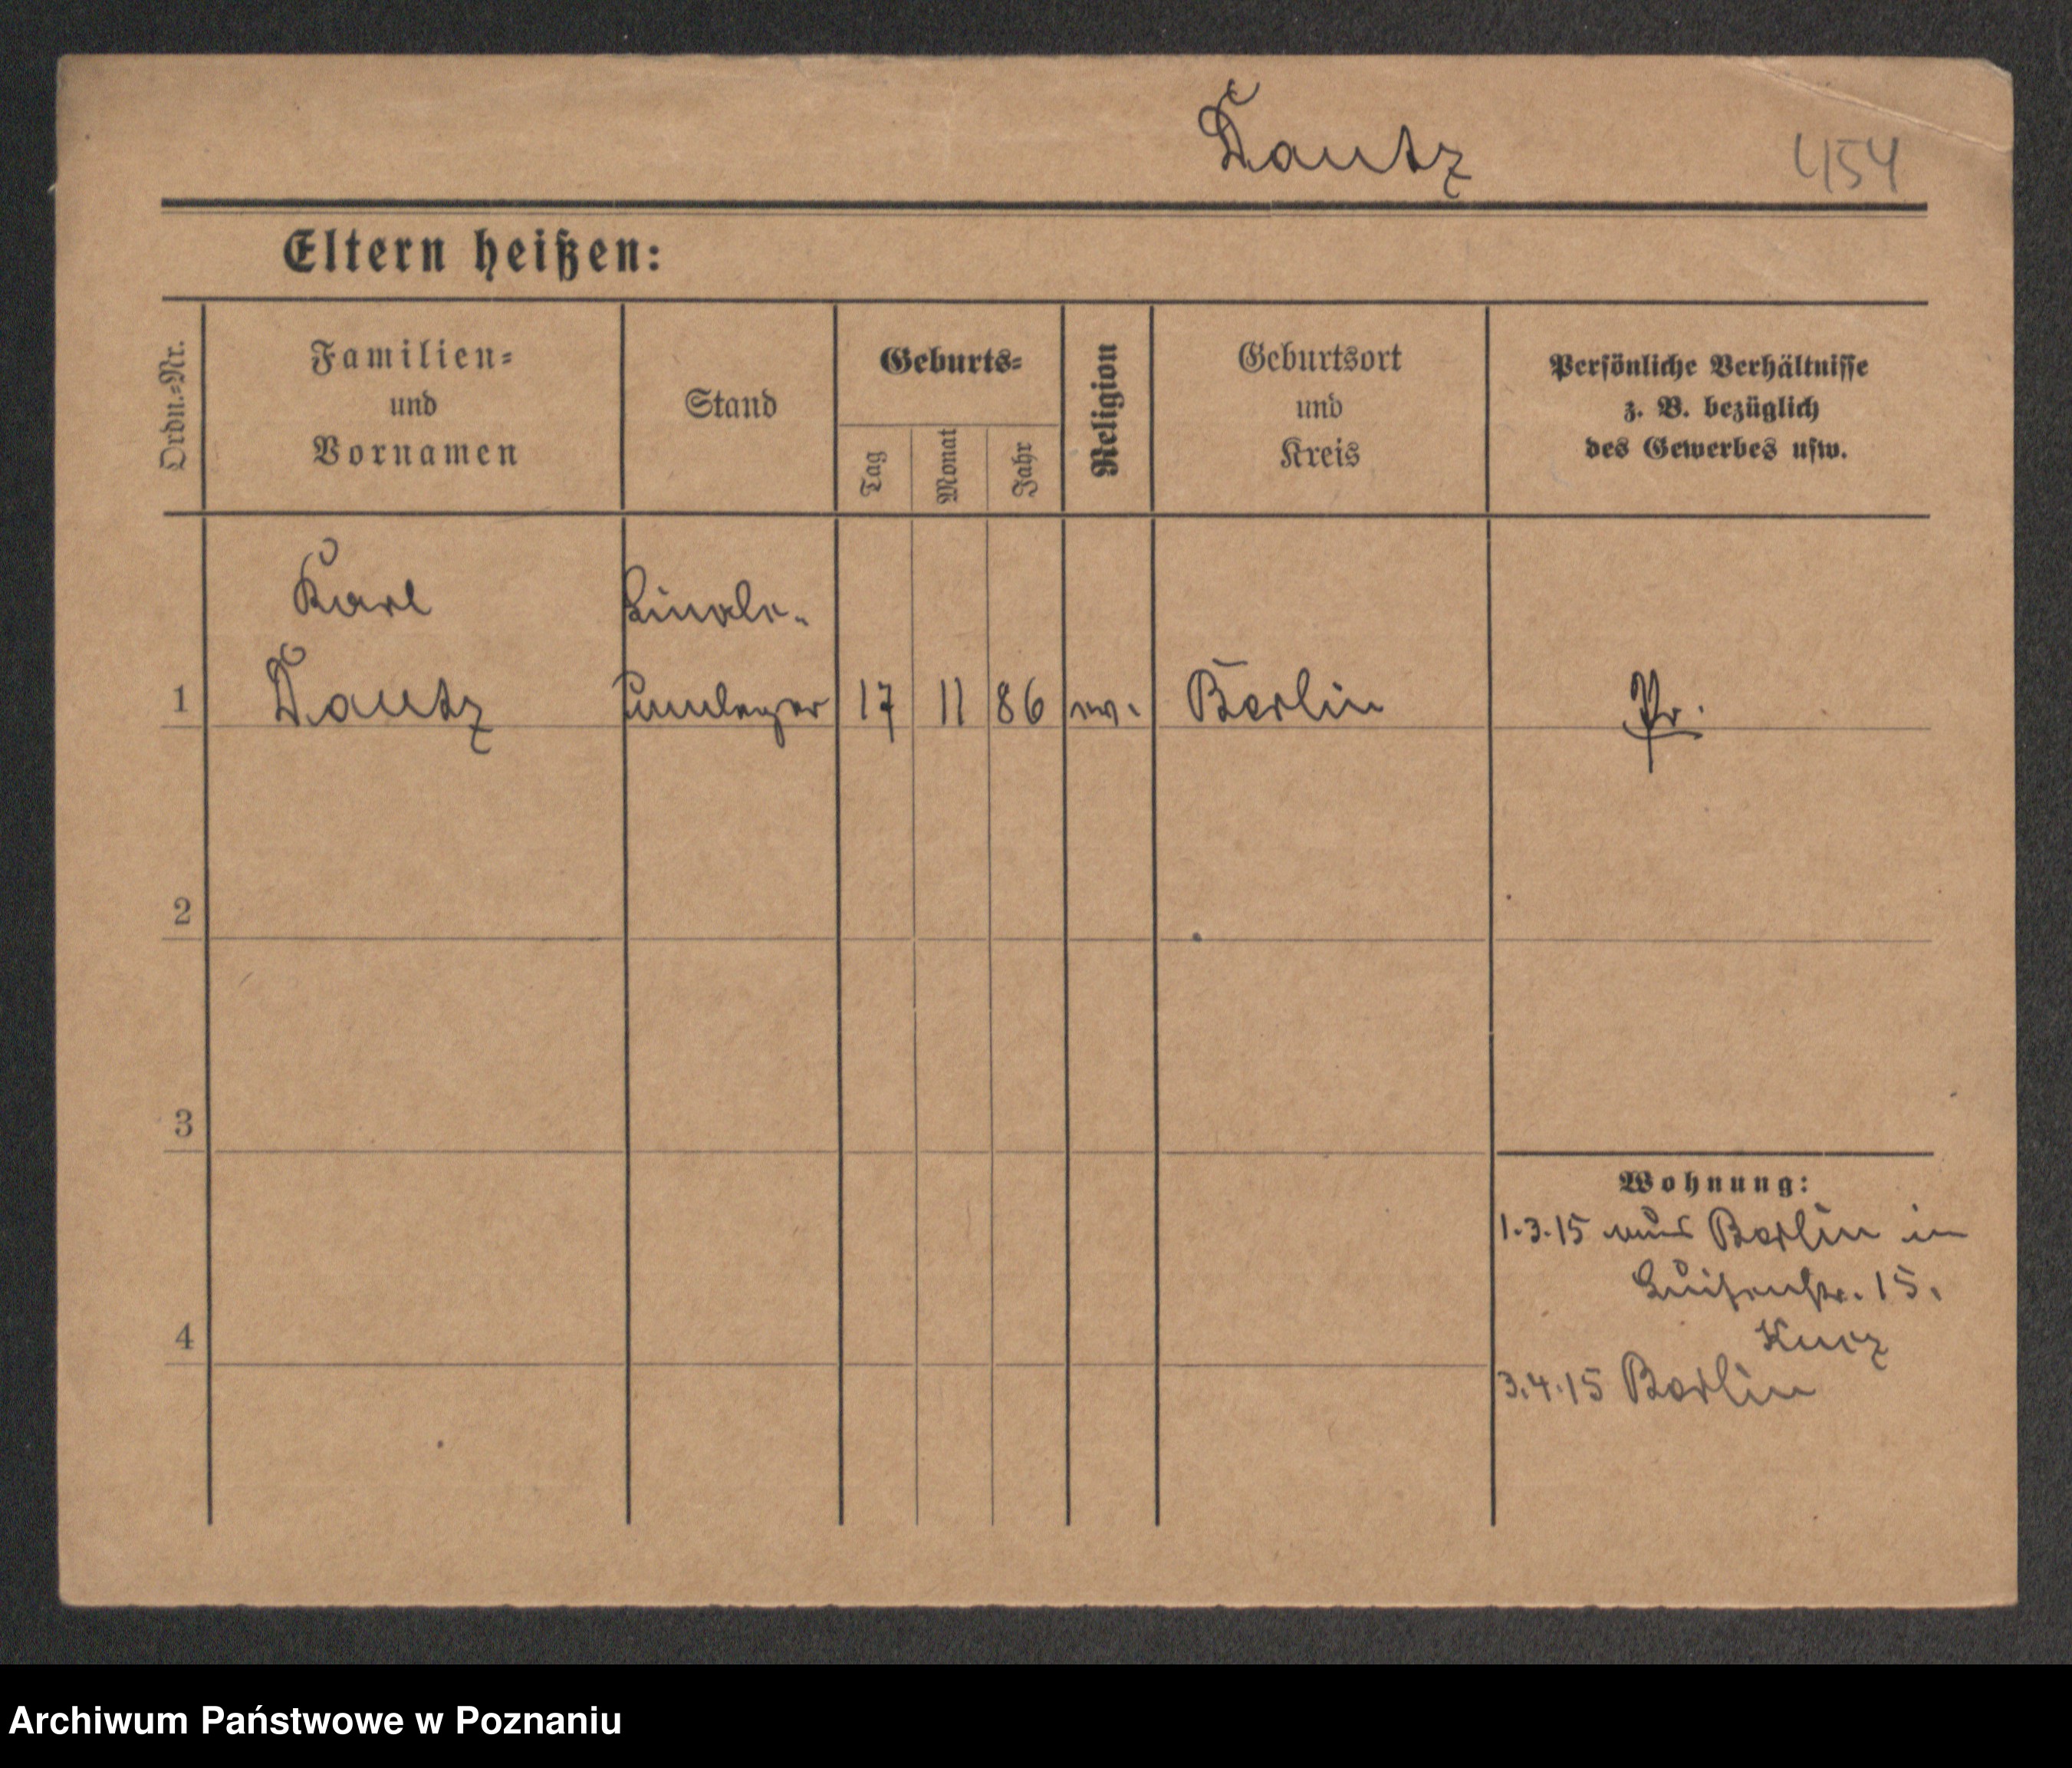 Dautz 454
Eltern heißen:
Ordn.=Nr.
Familien=
und
Vornamen
Stand
Geburts=
Tag
Monat
Jahr
Religion
Geburtsort
und
Kreis
Persönliche Verhältnisse
z. B. bezüglich
des Gewerbes usw.
Karl
1 Dautz 17 11 86 ev. Berlin Pr.
2
3
Wohnung:
1.3.15 aus Berlin in
Luisenstr. 15.
4
3.4.15 Berlin
Archiwum Państwowe w Poznaniu